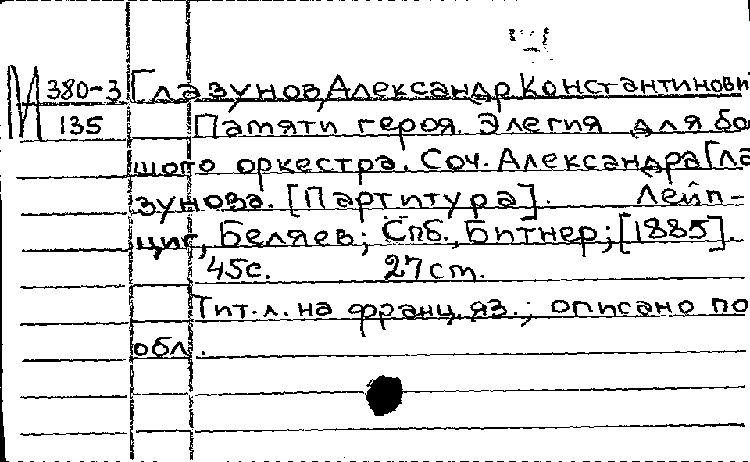 М 380-3 Глазунов, Александр Константинови
135 Памяти героя. Элегия для бо
шого оркестра. Соч. Александра Гла
зунова. [Партитура]. Лейп-
циг, Беляев; Спб., Битнер; [1885].
45с. 27 cm.
Тит. л. на франц. яз.; описано по
обл.